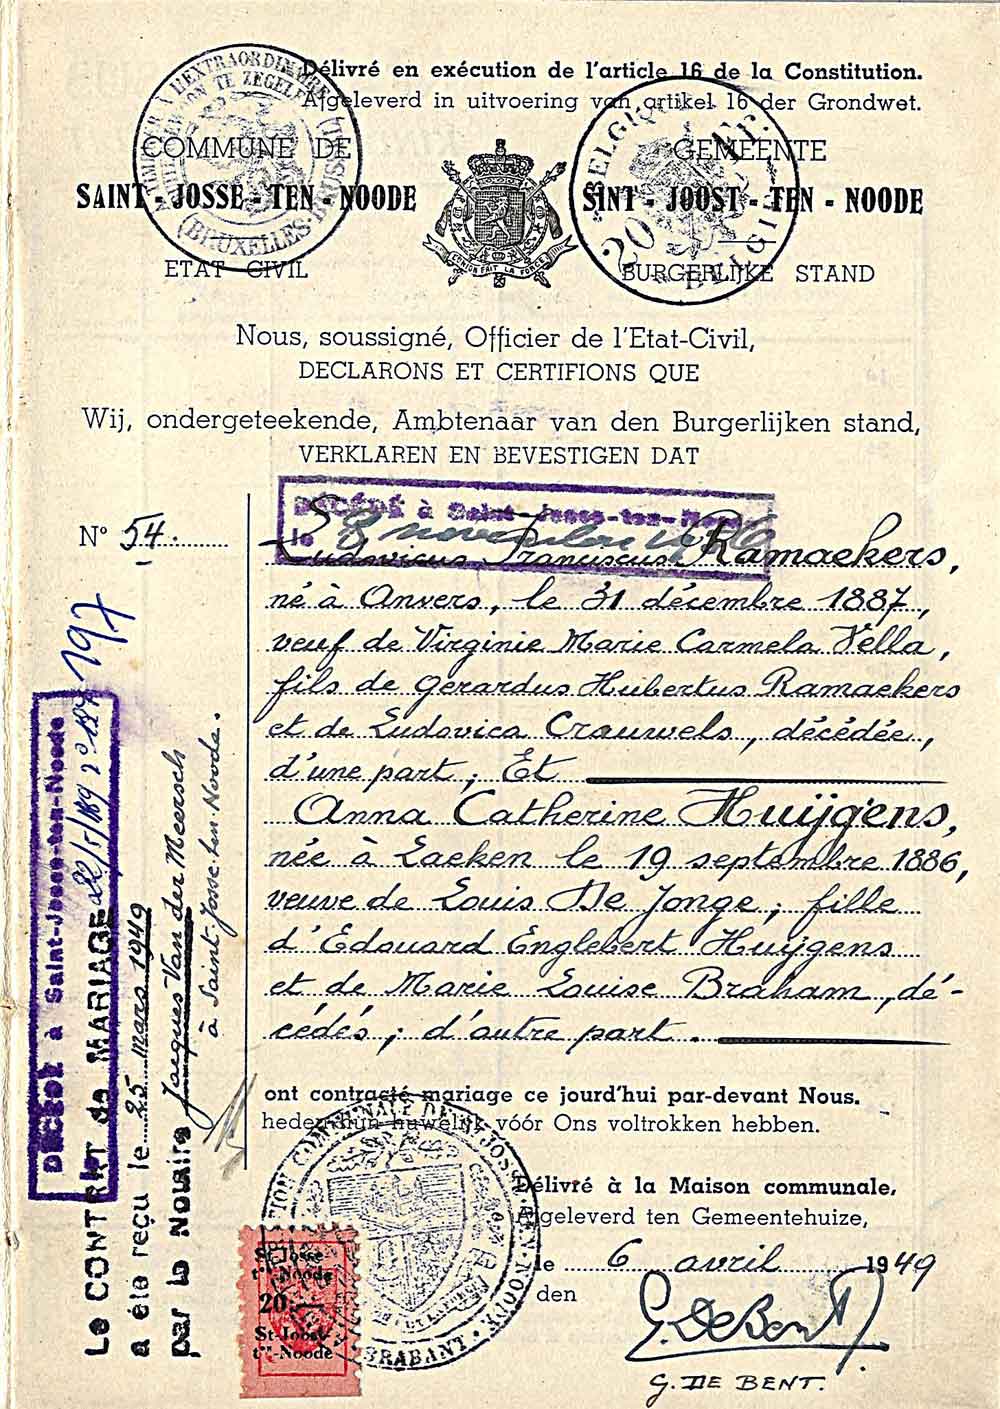 Délivré en exécution de l'article 16 de la Constitution.
Afgeleverd in uitvoering van artikel 16 der Grondwet.
COMMUNE DE
SAINT - JOSSE - TEN - NOODE
ETAT CIVIL
GEMEENTE
SINT - JOOST - TEN - NOODE
BURGERLIJKE STAND
TIMBRE EXTRAORDINAIRE
(BRUXELLES-
L'UNION FAIT LA FORCE
BELGIQUE
20 FR.
BELGIE
Nous, soussigné, Officier de l'Etat-Civil,
DECLARONS ET CERTIFIONS QUE
Wij, ondergeteekende, Ambtenaar van den Burgerlijken stand,
VERKLAREN EN BEVESTIGEN DAT
DÉCÉDÉ à Saint-Josse-ten-Noode
le 8 novembre
N° 54.
Ludovicus Franciscus Ramaekers,
né à Anvers, le 31 décembre 1887,
veuf de Virginie Marie Carmela Vella,
fils de Gerardus Hubertus Ramaekers
et de Ludovica Crauwels, décédée,
d'une part; Et
Anna Catherine Huijgens,
née à Laeken le 19 septembre 1886,
veuve de Louis De Jonge; fille
d'Edouard Englebert Huijgens
et de Marie Louise Braham, dé-
cédés; d'autre part.
ont contracté mariage ce jourd'hui par-devant Nous.
heden hun huwelijk vóór Ons voltrokken hebben.
Délivré à la Maison communale,
Afgeleverd ten Gemeentehuize,
le 6 avril 1949
den
G. De Bent
G. DE BENT.
DÉCÉDÉ à Saint-Josse-ten-Noode
197
Le CONTRAT de MARIAGE
a été reçu le 25 mars 1949
par le Notaire Jacques Van der Meersch
à Saint-Josse-ten-Noode.
St-Josse-
t"-Noode
20
St-Joost-
t"-Noode
BRABANT